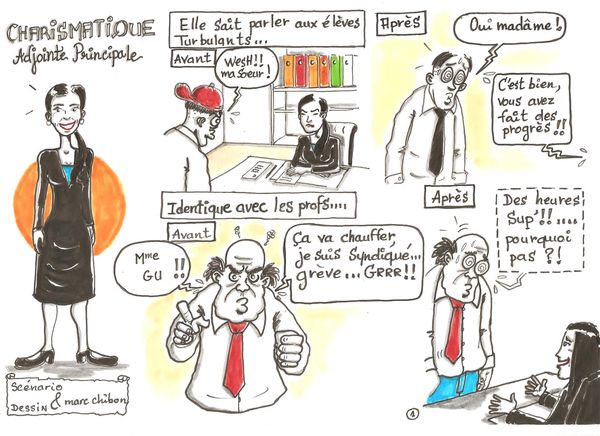 CHARISMATIQUE
Adjointe Principale
Elle sait parler aux élèves
Turbulants...
Avant
WesH!!
ma soeur!
Après
Oui madâme!
C'est bien,
vous avez
fait des
progrès!!
Identique avec les profs....
Avant
Mme
GU !!
Ça va chauffer,
je suis Syndiqué...
grève... GRRR!!
Après
Des heures
Sup'!!....
pourquoi
pas ?!
Scénario
& marc chibon
DESSIN
1